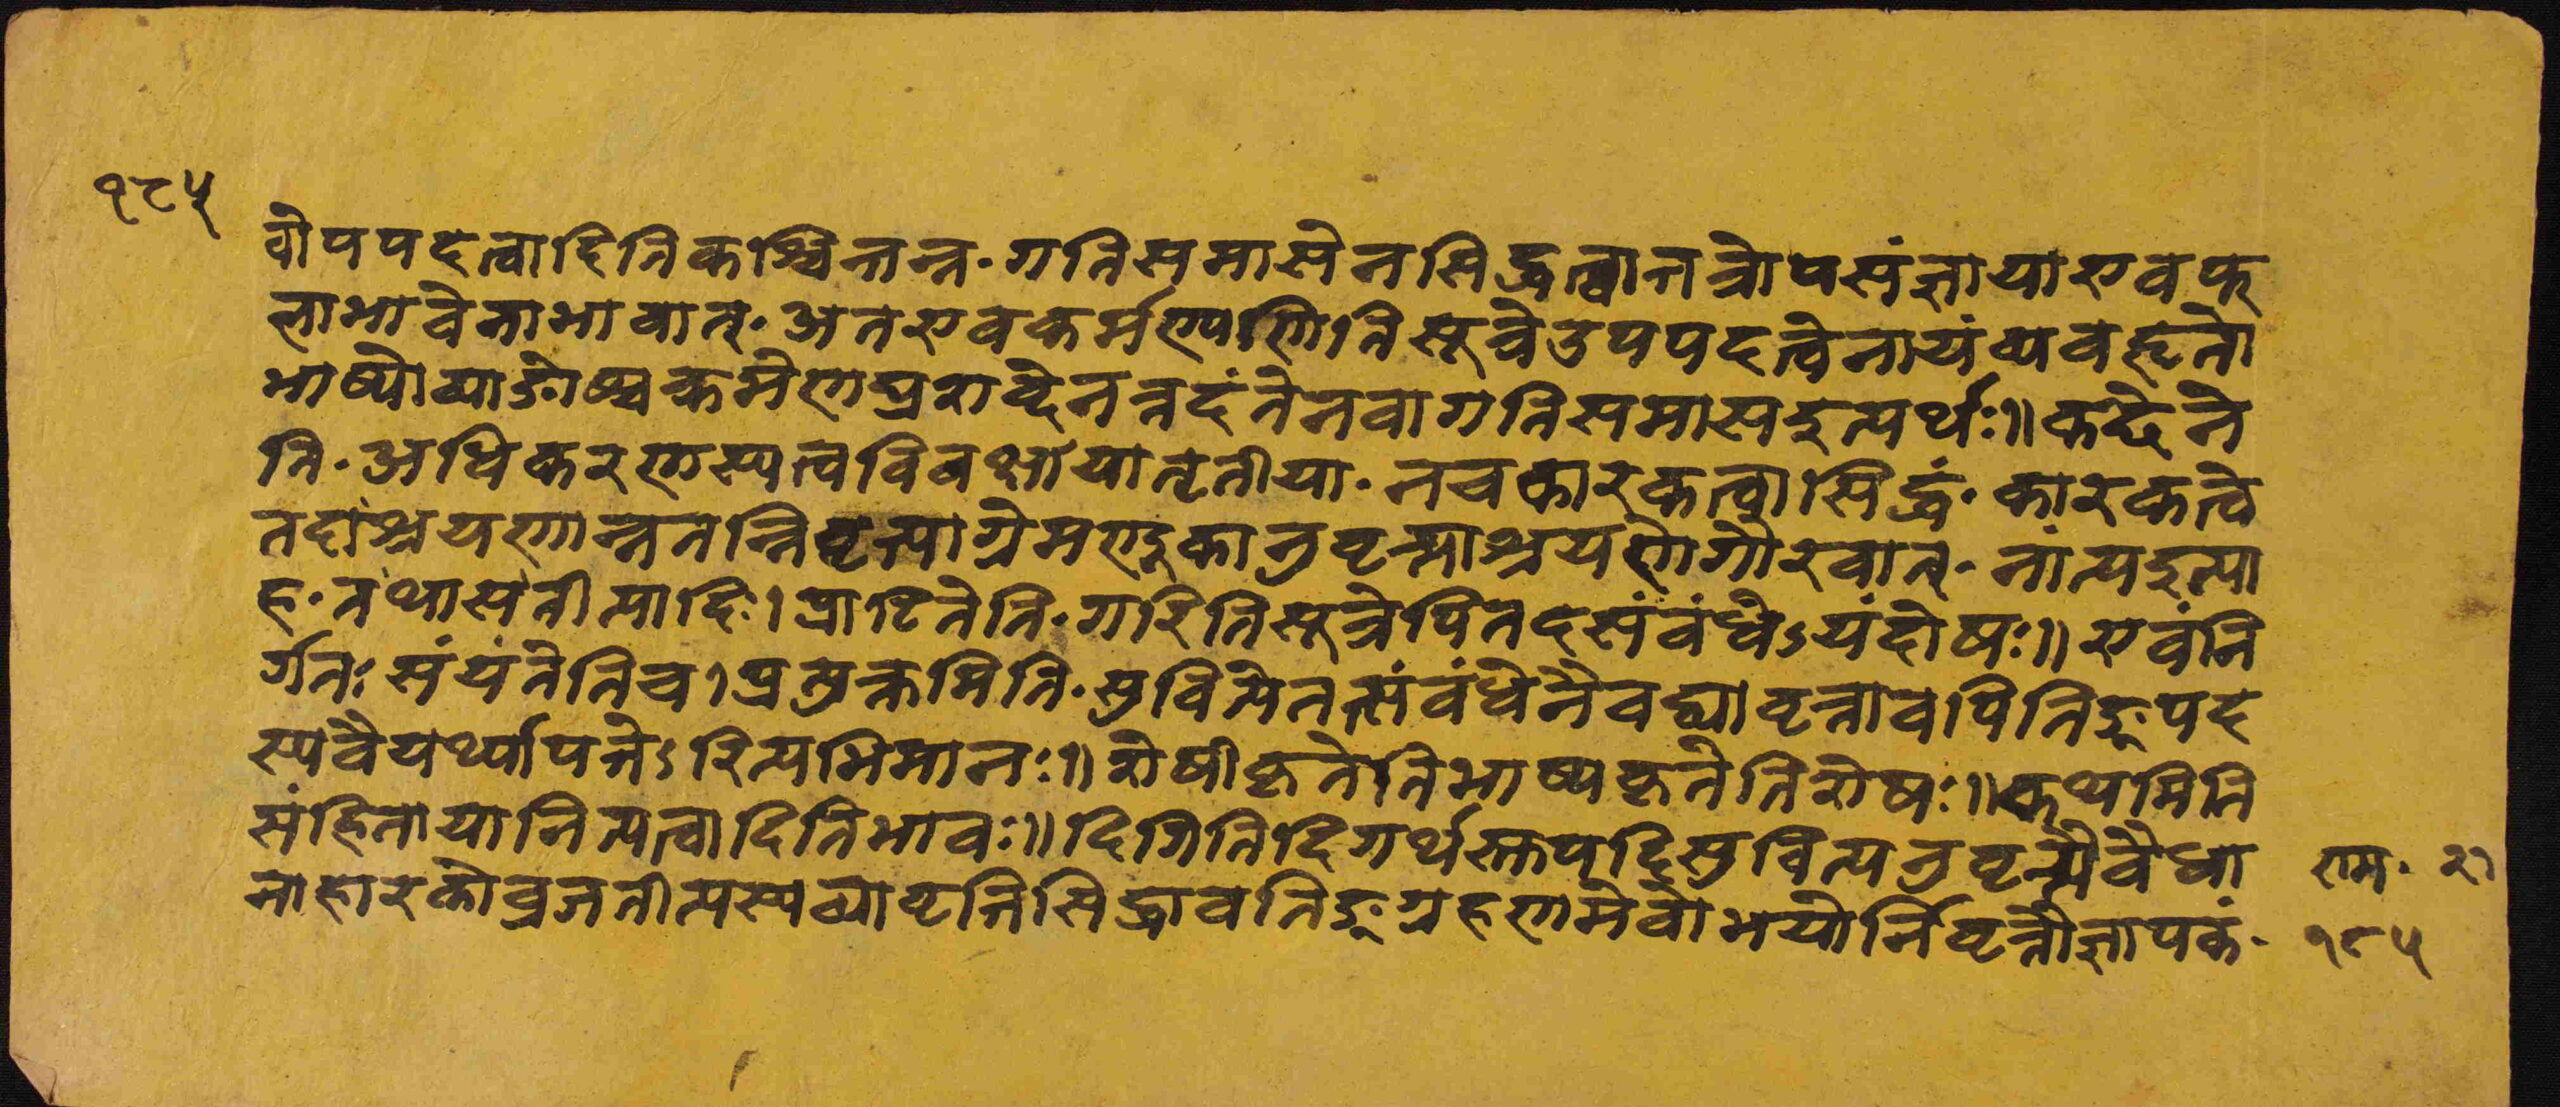 १८५
वोपपदत्वादितिकश्चित्तन्न॰ गतिसमासेनसिद्धत्वात्तत्रोपसंज्ञायाएवफ
लाभावेनाभावात्॰ अतएवकर्मण्यणितिसूत्रेउपपदत्वेनायंव्यवहृतो
भाष्येव्याङोष्वक्रमेणप्रशब्देनतदंतेनवागतिसमासइत्यर्थः॥ कच्छेने
ति॰ अधिकरणस्यत्वविवक्षायांतृतीया॰ नचकारकत्वासिद्धं॰ कारकत्वे
तदाश्रयणान्नतन्निवृत्त्याग्रेमण्डूकानुवृत्त्याश्रयणेगौरवात्॰ नांत्यइत्या
ह॰ तथासतीत्यादि। प्राटितेति॰ गरितिसूत्रेपितदसंबंधेऽयंदोषः॥ एवंनि
र्गतः संयंतेतिच। प्रत्युक्तमिति॰ सुवित्येतत्संबंधेनैवव्यावृत्तावपितिङ्पद
स्यवैयर्थ्यापत्तेऽरित्यभिमानः॥ शेषीकृतेतिभाष्यकृतेतिशेषः॥ कथमिति
संहितायानित्यत्वादितिभावः॥ दिगितिदिगर्थस्तपदिसुवित्यनुवृत्त्यैवैधा
नाहारकोव्रजतीत्यस्यव्यावृत्तिसिद्धावतिङ्ग्रहणमेवोभयोर्निवृत्तौज्ञापकं॰
राम॰ २।
१८५